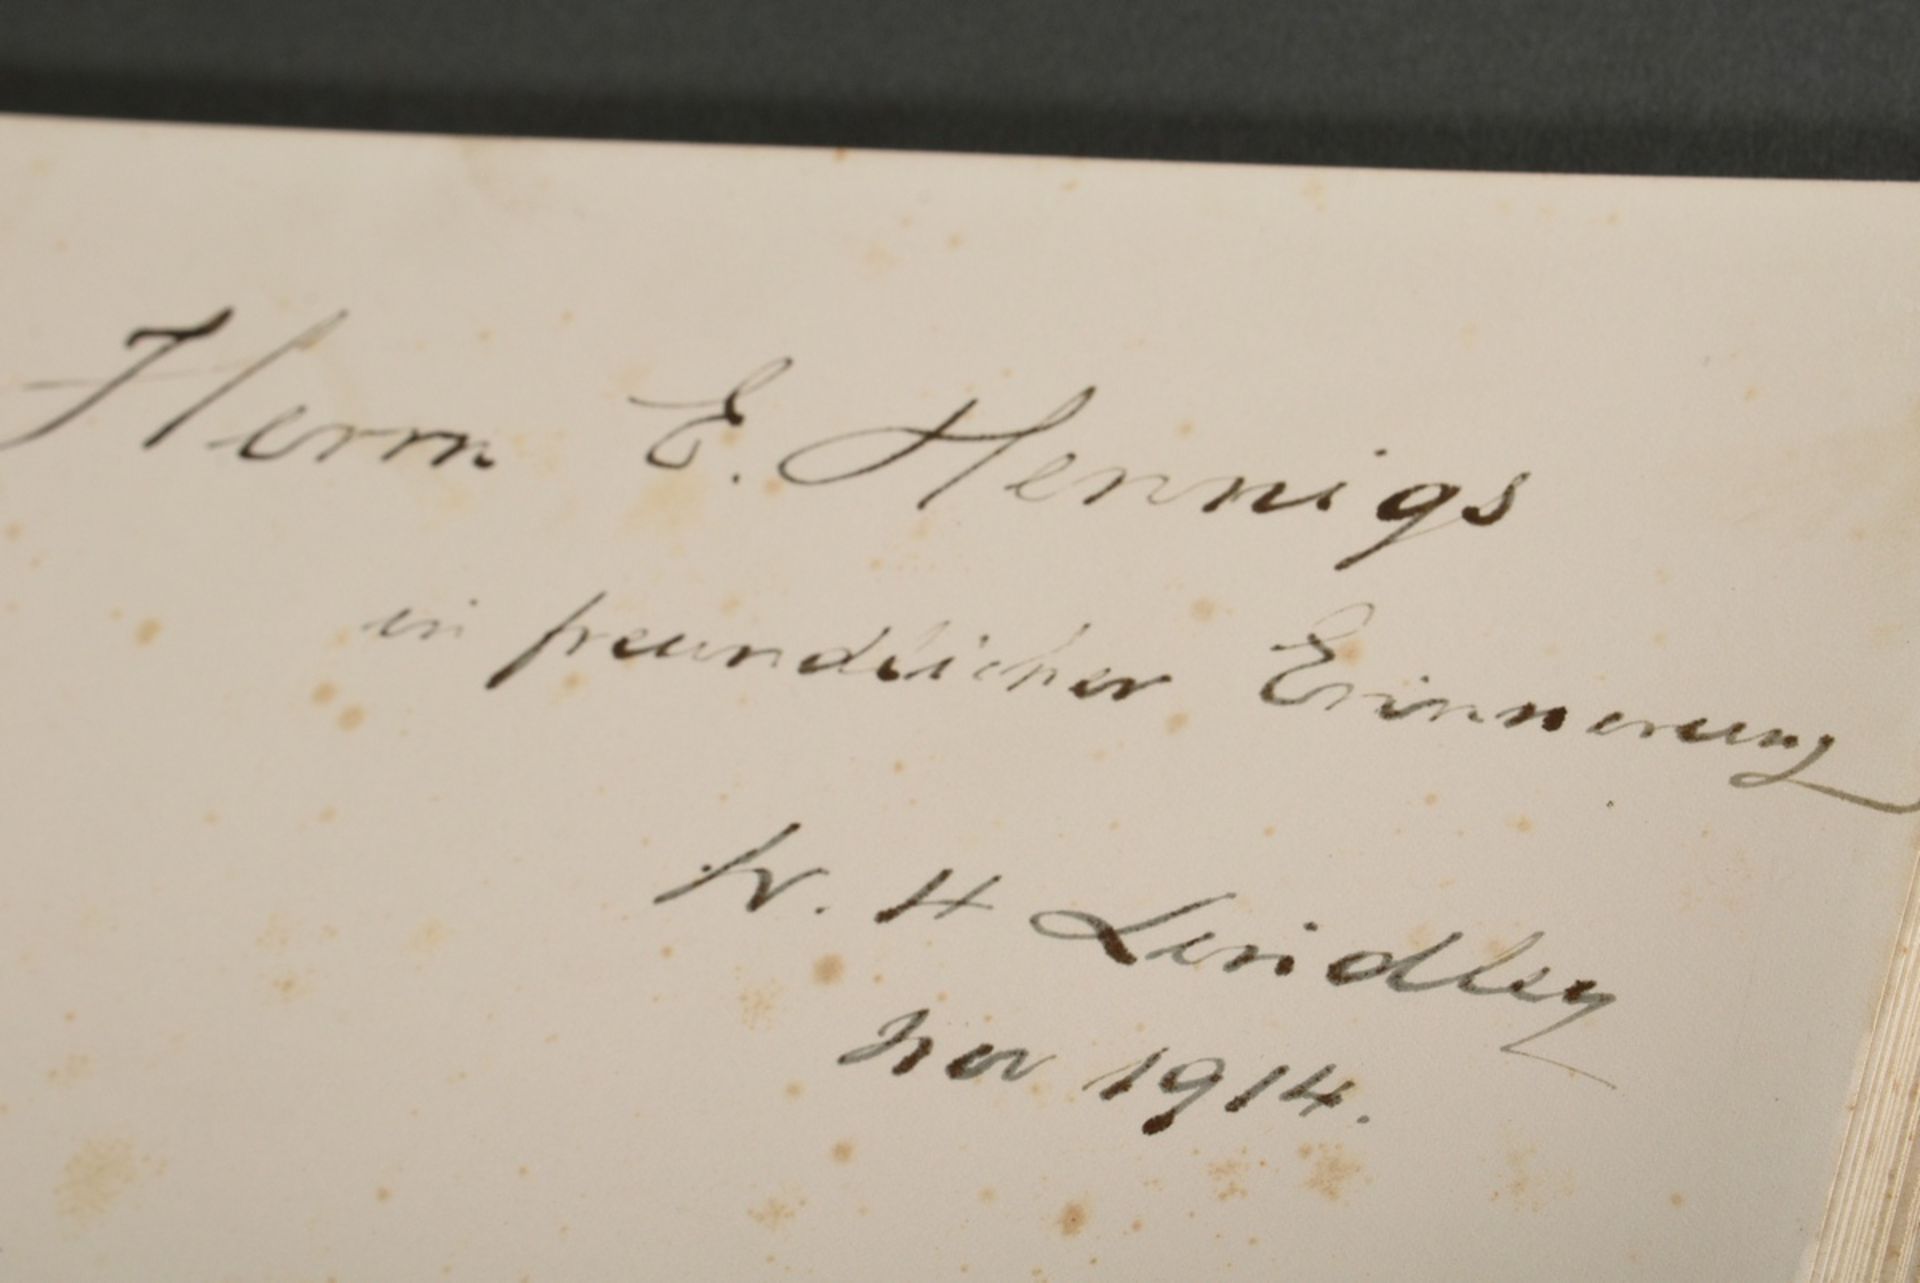 Herrn E. Hennigs
in freundlicher Erinnerung
W. H Lindley
Nov 1914.